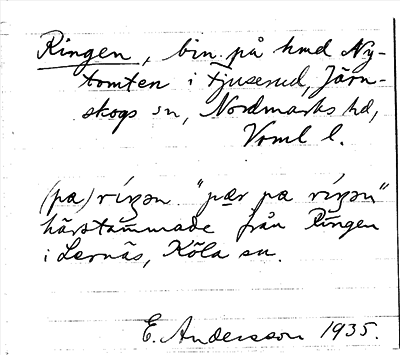 Ringen, bin. på hmd Ny-
tomten i Tjuserud, Järn-
skogs sn, Nordmarks hd,
Vrml l.
(pa) ríŋən "pær pa ríŋən"
härstammade från Ringen
i Lernäs, Köla sn.
E. Andersson 1935.